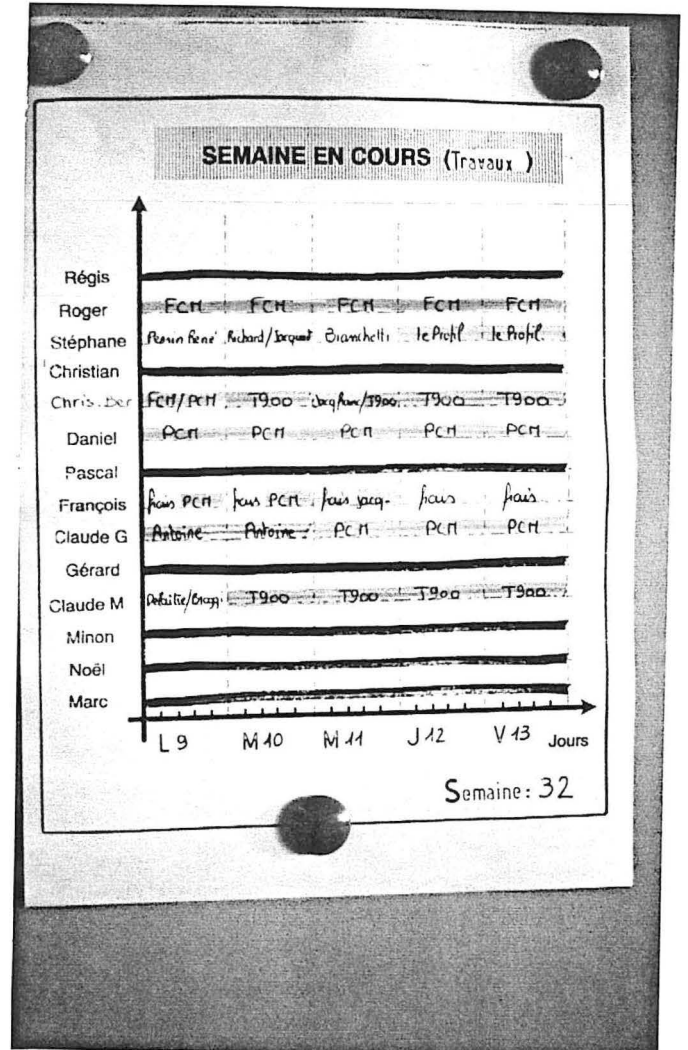 SEMAINE EN COURS (Travaux)
Régis
Roger FCM FCM FCM FCM FCM
Stéphane Perrin René Richard/Jacquot Bianchetti le Profil le Profil
Christian
Chris. Ber FCM/PCM T900 T900 T900 T900
Daniel PCM PCM PCM PCM PCM
Pascal
François frais PCM frais PCM frais jacq. frais frais
Claude G Antoine Antoine PCM PCM PCM
Gérard
Claude M T900 T900 T900 T900
Minon
Noël
Marc
L 9 M 10 M 11 J 12 V 13 Jours
Semaine: 32